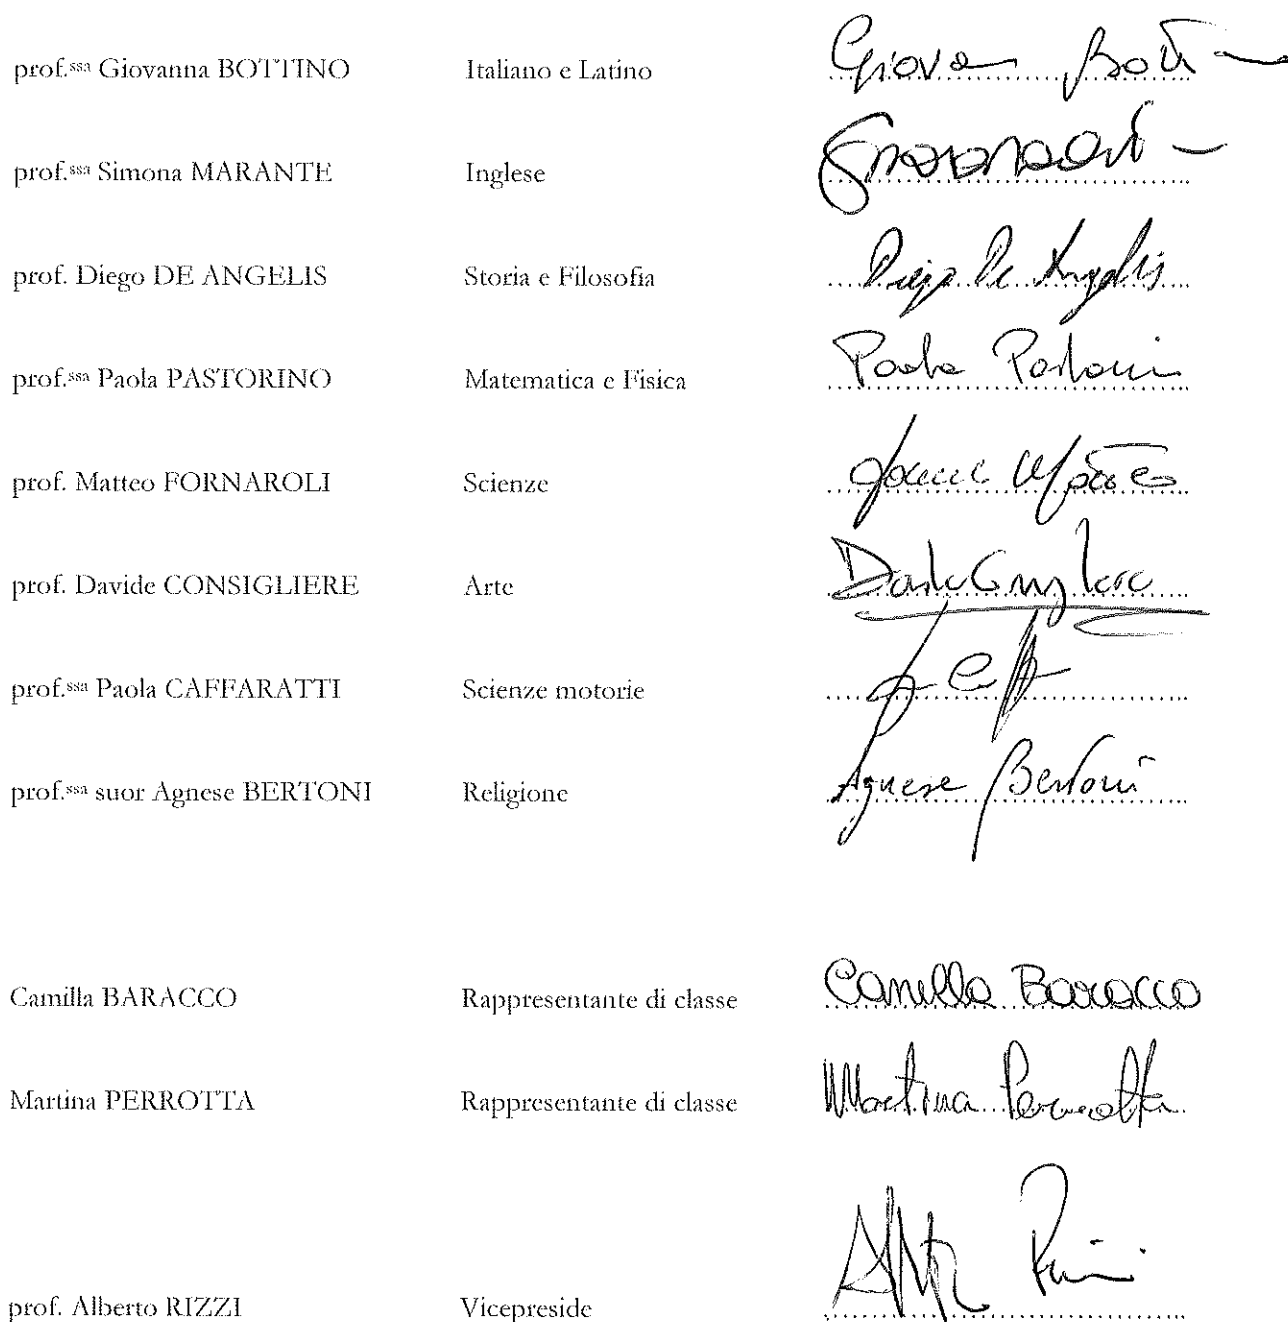 prof.ssa Giovanna BOTTINO Italiano e Latino
prof.ssa Simona MARANTE Inglese
prof. Diego DE ANGELIS Storia e Filosofia Diego De Angelis
prof.ssa Paola PASTORINO Matematica e Fisica Paola
prof. Matteo FORNAROLI Scienze
prof. Davide CONSIGLIERE Arte
prof.ssa Paola CAFFARATTI Scienze motorie
prof.ssa suor Agnese BERTONI Religione Agnese Bertoni
Camilla BARACCO Rappresentante di classe Camilla Baracco
Martina PERROTTA Rappresentante di classe Martina Perrotta
prof. Alberto RIZZI Vicepreside